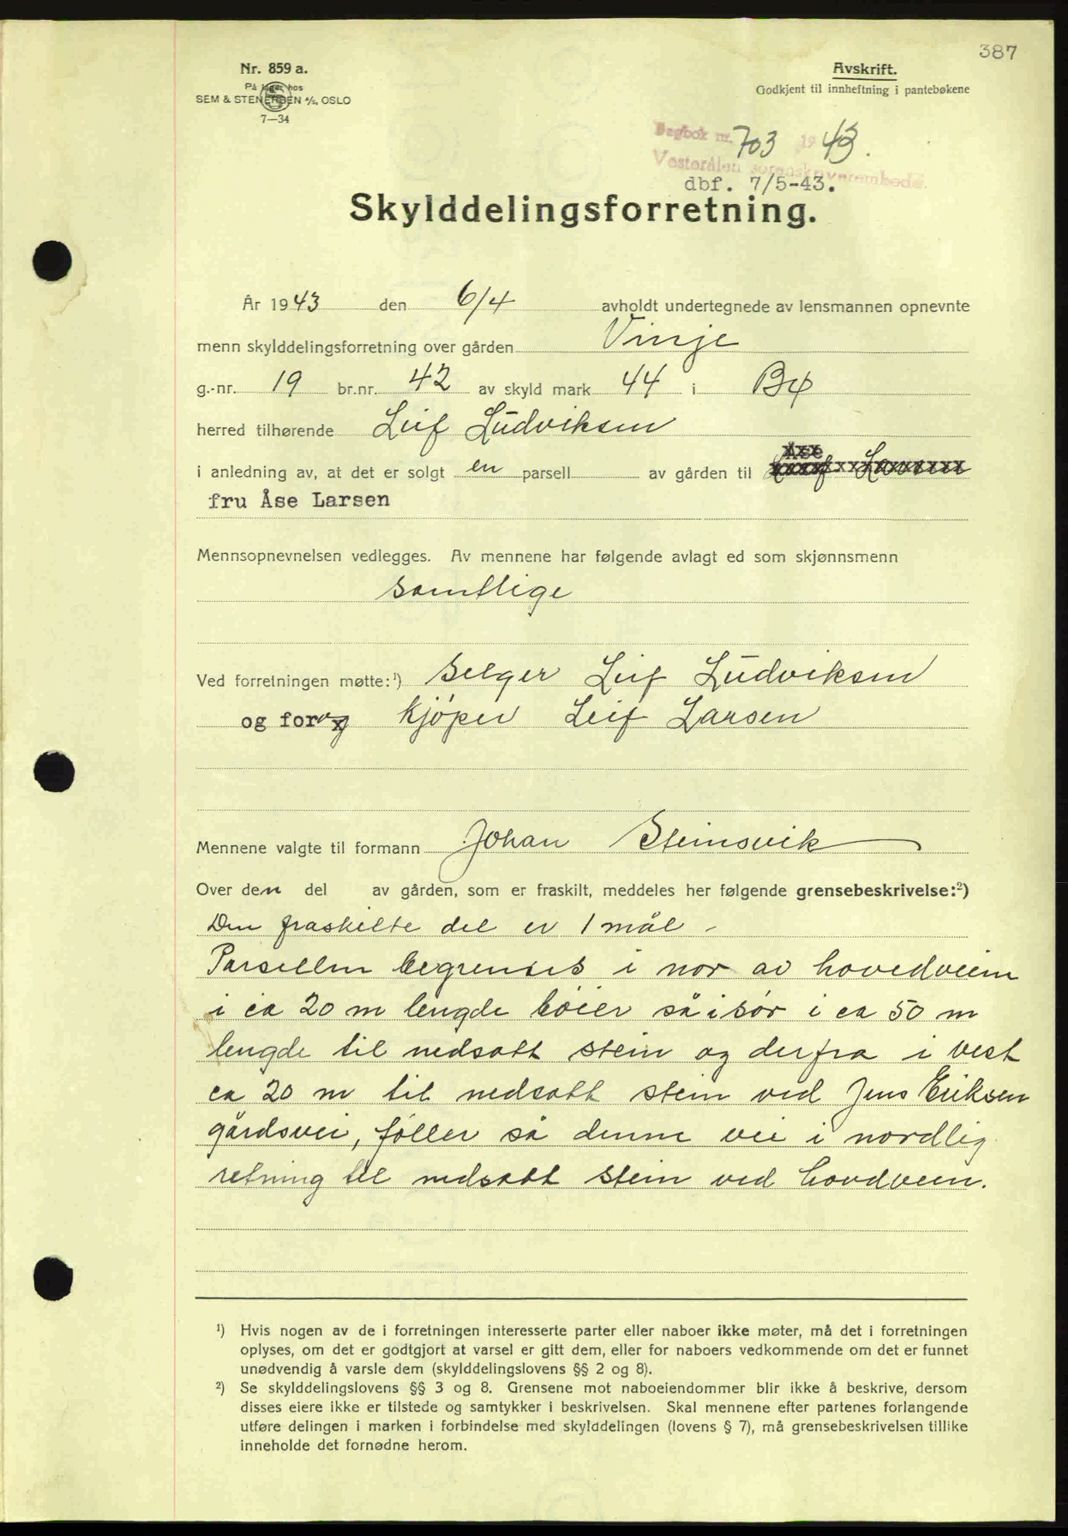 387
Nr. 859 a.
På lager hos
SEM & STENERSEN A/S, OSLO
7—34
Avskrift.
Godkjent til innheftning i pantebøkene
Dagbok nr. 703 1943.
Vesterålen sorenskriverembede
dbf. 7/5-43.
Skylddelingsforretning.
År 1943 den 6/4 avholdt undertegnede av lensmannen opnevnte
menn skylddelingsforretning over gården Vinje
g.-nr. 19 br.nr. 42 av skyld mark 44 i Bø
herred tilhørende Leif Ludviksen
i anledning av, at det er solgt en parsell av gården til
fru Åse Larsen
Mennsopnevnelsen vedlegges. Av mennene har følgende avlagt ed som skjønnsmenn
samtlige
Ved forretningen møtte:¹) selger Leif Ludviksen
og for kjöper Leif Larsen
Mennene valgte til formann Johan Steinsvik
Over den del av gården, som er fraskilt, meddeles her følgende grensebeskrivelse:²)
Den fraskilte del er 1 mål -
Parsellen begrenses i nor av hovedveien
i ca 20 m lengde böier så i sør i ca 50 m
lengde til nedsatt stein og derfra i vest
ca 20 m til nedsatt stein ved Jens Eriksen
gårdsvei, föller så denne vei i nordlig
retning til nedsatt stein ved hovdveien.
¹) Hvis nogen av de i forretningen interesserte parter eller naboer ikke møter, må det i forretningen
oplyses, om det er godtgjort at varsel er gitt dem, eller for naboers vedkommende om det er funnet
unødvendig å varsle dem (skylddelingslovens §§ 2 og 8).
²) Se skylddelingslovens §§ 3 og 8. Grensene mot naboeiendommer blir ikke å beskrive, dersom
disses eiere ikke er tilstede og samtykker i beskrivelsen. Skal mennene efter partenes forlangende
utføre delingen i marken i forbindelse med skylddelingen (lovens § 7), må grensebeskrivelsen tillike
inneholde det fornødne herom.